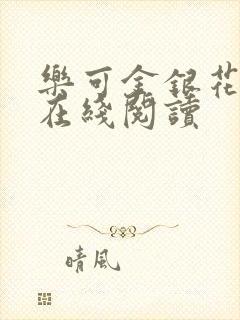 樂可金銀花
在綫閱讀
晴風